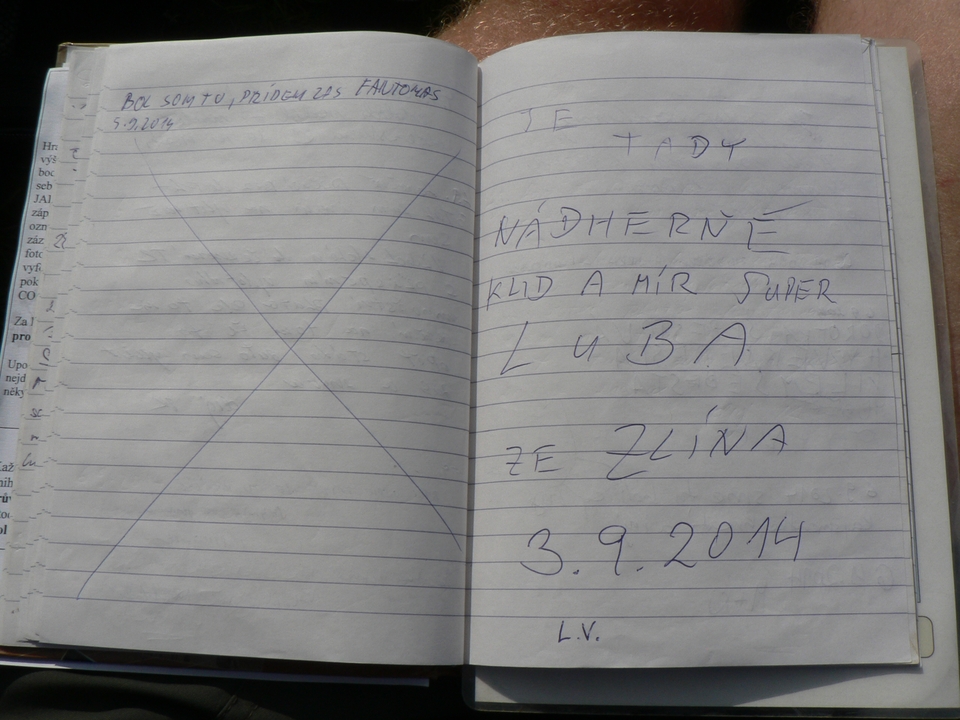 BOL SOM TU, PRÍDEM ZAS FANTOMAS
5.9.2014
JE
TADY
NÁDHERNĚ
KLID A MÍR SUPER
LUBA
ZE ZLÍNA
3.9.2014
L.V.
Hra
výš
boc
seb
JAI
záp
ozn
záz
foto
vyfo
pok
CO
Za l
pro
Upo
nejd
něky